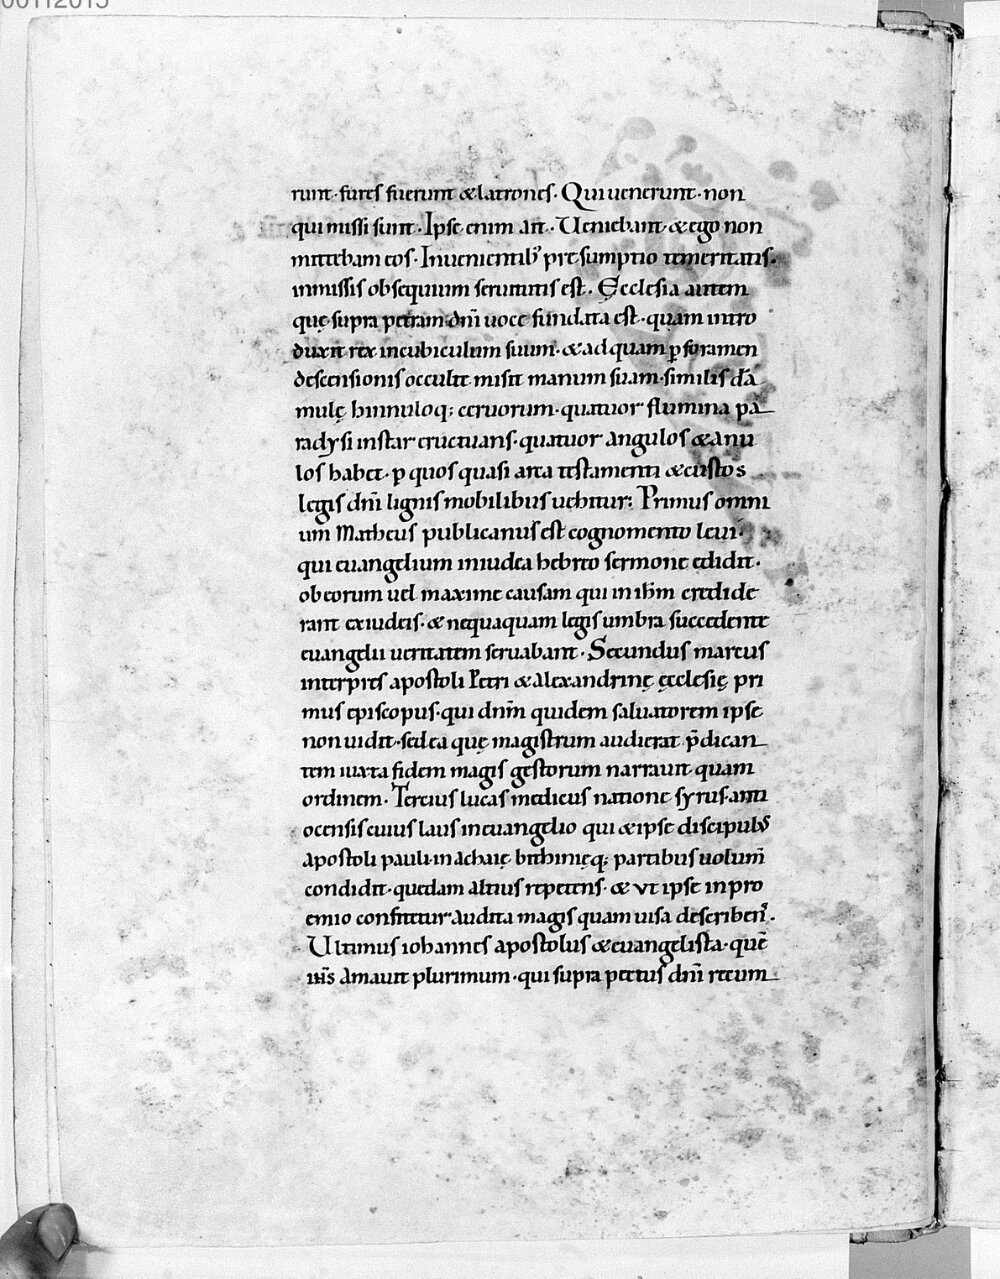 00112015
runt·fures fuerunt & latrones. Qui uenerunt·non
qui missi sunt. Ipse enim ait. Veniebant·& ego non
mittebam eos. In uenientib; pręsumptio temeritatis.
in missis obsequium seruitutis est. Ęcclesia autem
quę supra petram dñi uoce fundata est·quam intro
duxit rex in cubiculum suum·& ad quam p foramen
descensionis occultę misit manum suam·similis dā
mulę hinnuloq; ceruorum·quatuor flumina pa
radysi instar eructuans·quatuor angulos & anu
los habet·p quos quasi arca testamenti & custos
legis dñi lignis mobilibus uehitur; Primus omni
um Matheus publicanus est cognomento leui·
qui euangelium in iudea hebreo sermone edidit·
ob eorum uel maxime causam qui in ihm credide
rant ex iudeis·& nequaquam legis umbra succedente
euangelii ueritatem seruabant. Secundus marcus
interpres apostoli Petri & alexandrinę ęcclesię pri
mus episcopus·qui dñm quidem saluatorem ipse
non uidit·sed ea quę magistrum audierat p̄dican
tem iuxta fidem magis gestorum narrauit quam
ordinem. Tercius lucas medicus natione syrus·anti
ocensis cuius laus in euangelio qui & ipse discipulus
apostoli pauli·in achaię bithinięq; partibus uolum̄
condidit·quedam altius repetens·& ut ipse in pro
emio confitetur audita magis quam uisa describen̄s.
Ultimus iohannes apostolus & euangelista·quē
ihs̄ amauit plurimum·qui supra pectus dñi recum